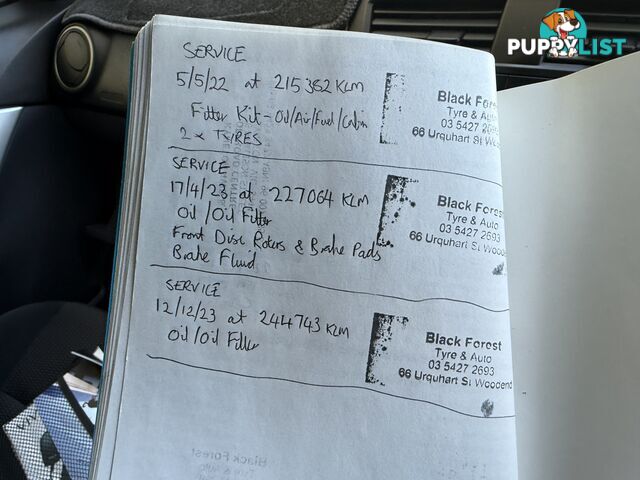 PUPPYLIST
SERVICE
5/5/22 at 215362 KLM
Filter Kit - Oil/Air/Fuel/Cabin
2 x TYRES
Black Fores
Tyre & Au
03 5427 269
66 Urquhart St Wooc
SERVICE
17/4/23 at 227064 KLM
Oil/Oil Filter
Front Disc Rotors & Brake Pads
Brake Fluid
Black Fores
Tyre & Auto
03 5427 2693
66 Urquhart St Woodend
SERVICE
12/12/23 at 244743 KLM
Oil/Oil Filter
Black Forest
Tyre & Auto
03 5427 2693
66 Urquhart St Woodend